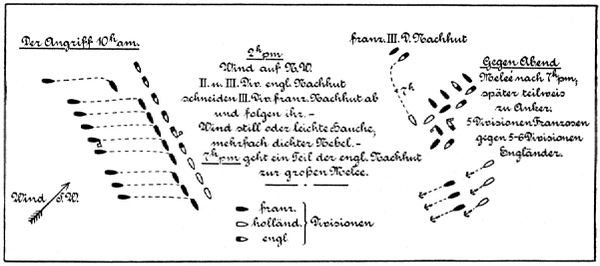 Der Angriff 10ʰ am.
Wind S.W.
2ʰ pm
Wind auf N.W.
II. u. III. Div. engl. Nachhut
schneiden III. Div. franz. Nachhut ab
und folgen ihr. –
Wind still oder leichte Hauche,
mehrfach dichter Nebel. –
7ʰ pm geht ein Teil der engl. Nachhut
zur großen Melee.
franz.
holländ. Divisionen
engl
franz. III. D. Nachhut
7ʰ
Gegen Abend
Melee nach 7ʰ pm,
später teilweis
zu Anker.
5 Divisionen Franzosen
gegen 5-6 Divisionen
Engländer.